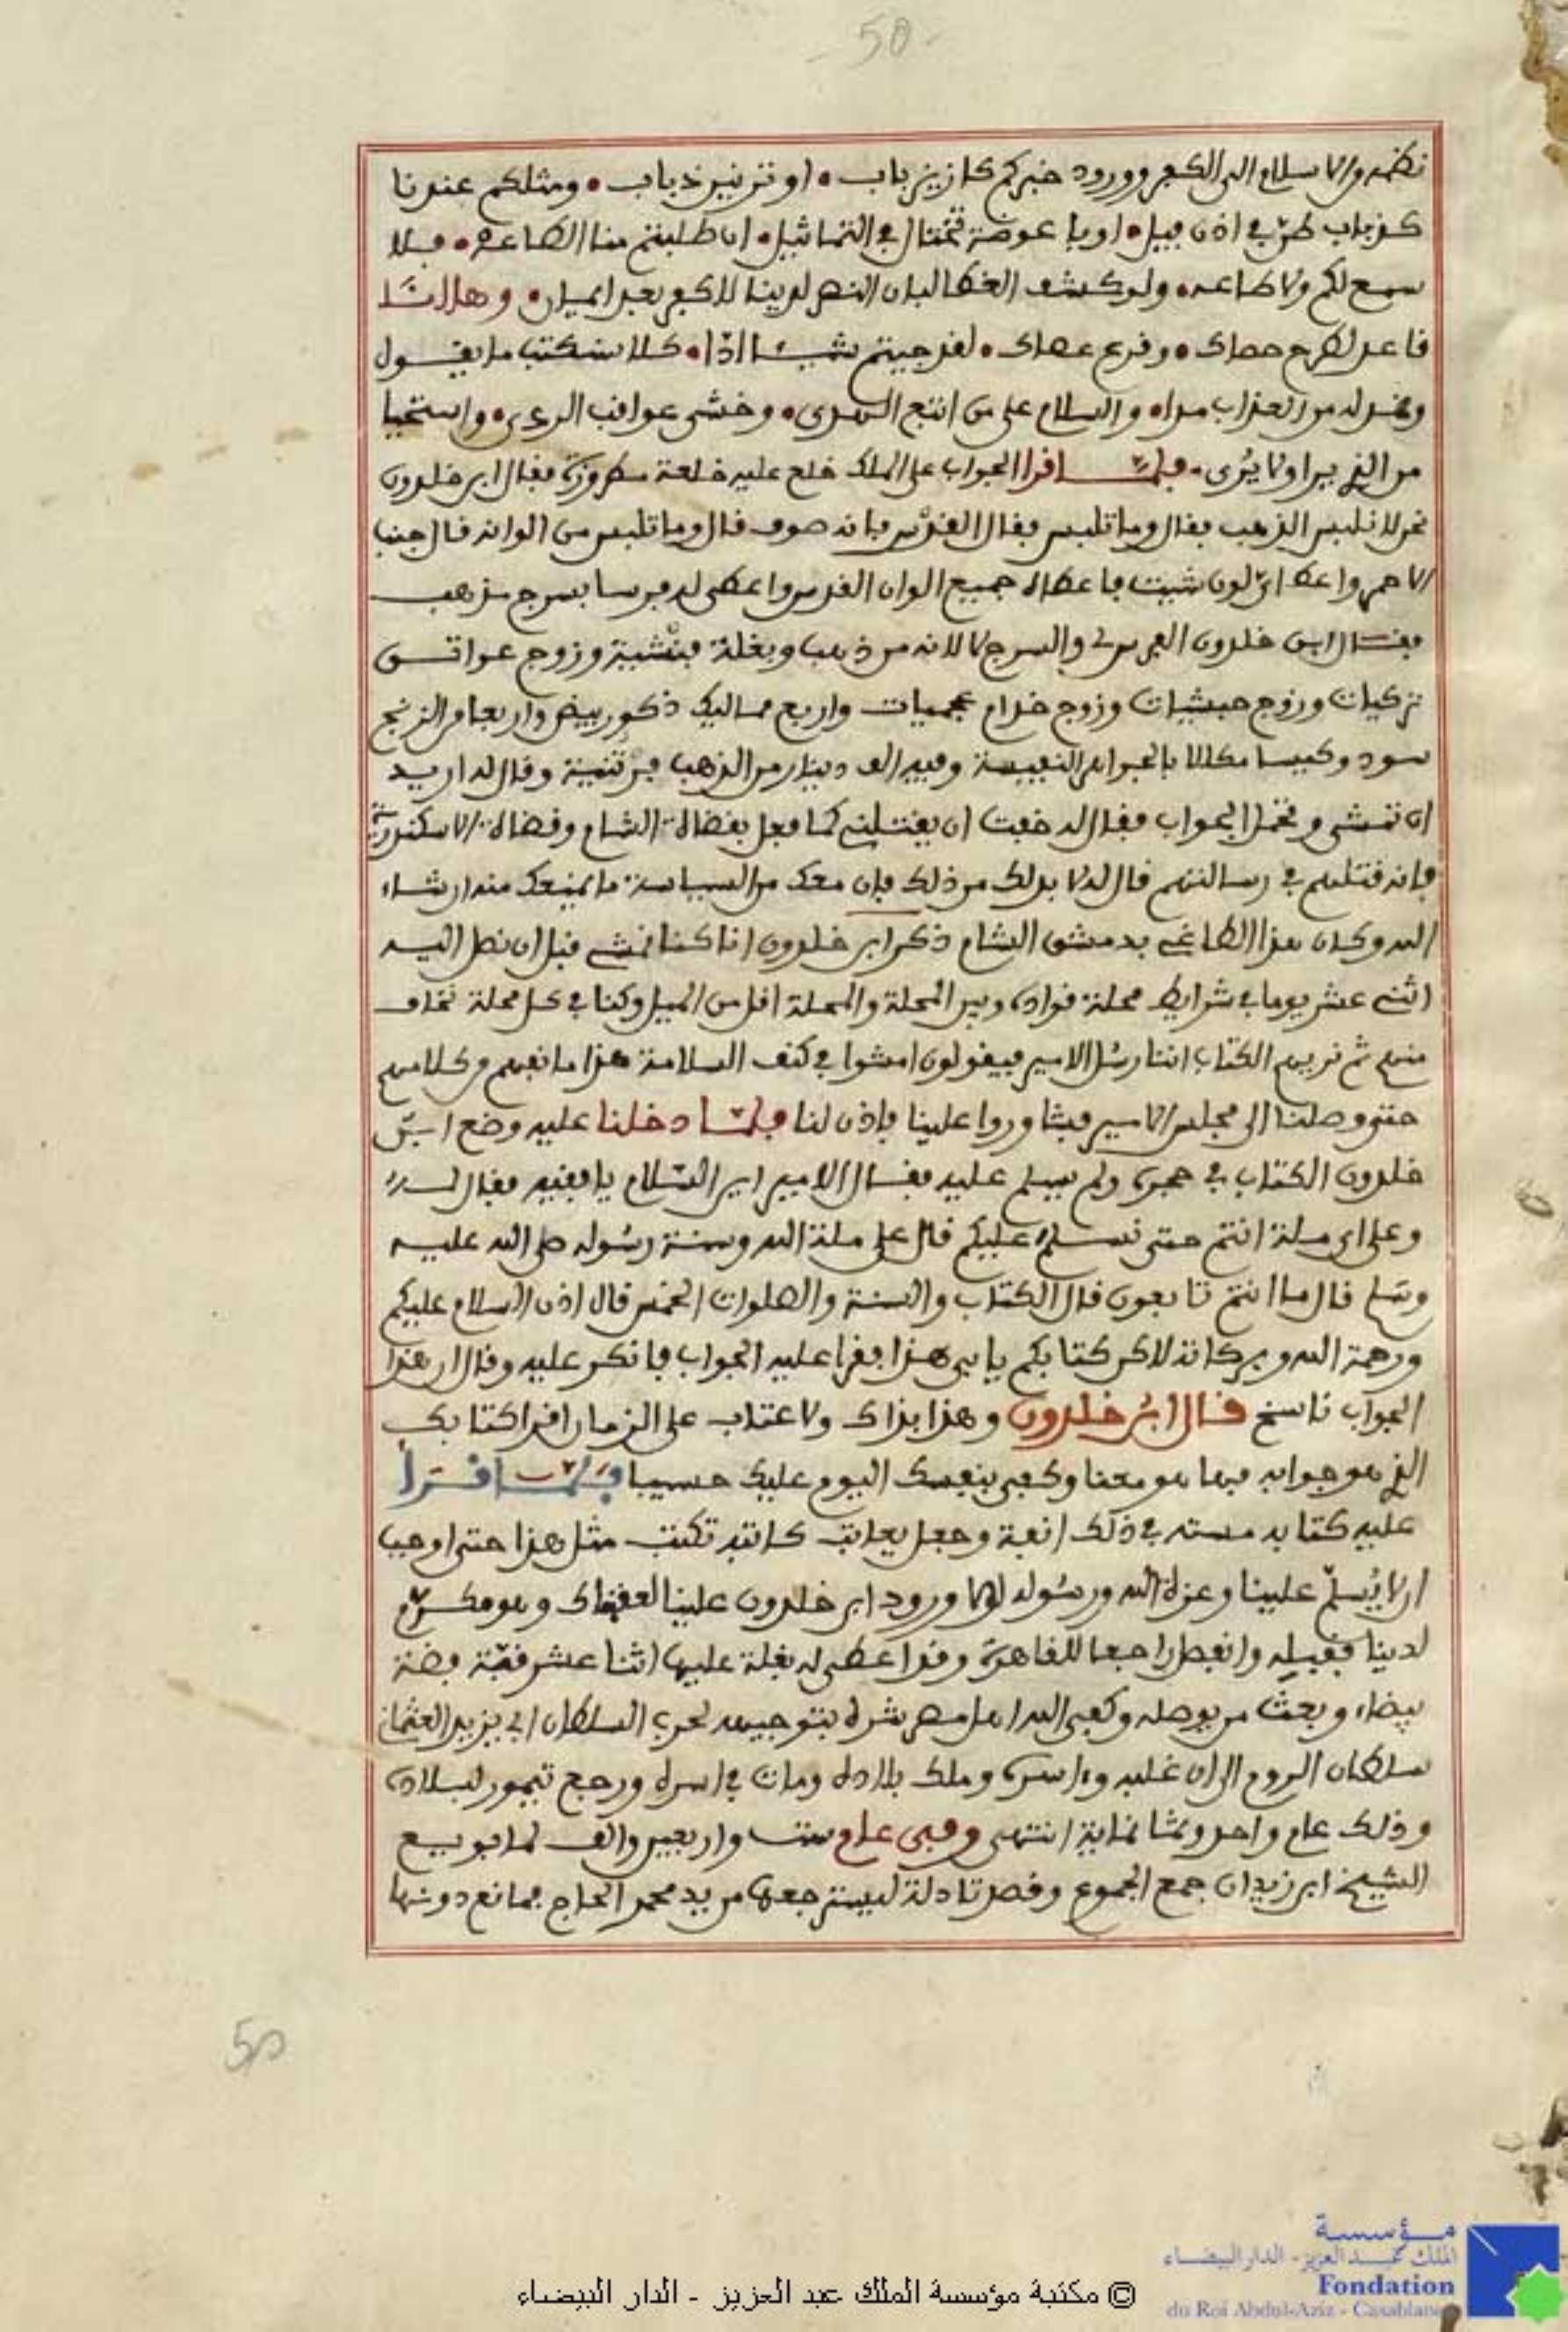 50
نظمه والاسلام الى الكفر وورود خبركم كازيز باب • او تزنيز ذباب • ومثلكم عندنا
كذباب طن في اذن فيل • او يا عوضة تختال في التماثيل • ان طلبتم منا الطاعة • فلا
سمع لكم ولا طاعه • ولو كشف الغطا لبان النصر لدينا للكفر بعد ايمان • وها انتا
قاعد لطرح حصاك • وقرع عصاك • لقد جيتم شيـئا ادّا • كلا سنكتب ما يقـول
ونمد له من العذاب مدا • والسلام على من اتبع الـهدى • وخشى عواقب الردى • واستحيا
من الذى يرا ولا يُرى • فلمـــا قرا الجواب على الملك خلع عليه خلعة مطروزة فقال ابن خلدون
نحن لا نلبس الذهب فقال وما تلبس فقال القدّس فانه صوف قال وما تلبس من الوانه قال جنب
الاحمر واعطا ايّ لون شيت فاعطاه جميع الوان القدس واعطى له فرسا بسرج مذهب
فقــال ابن خلدون الفرس لى والسرج لا لانه من ذهب وبغلة فنشية وزوج عواتـــق
تركيات وزوج حبشيات وزوج خدام عجميات واربع مماليك ذكور بيض واربعا من الزنج
سود وكيسا مكللا بالجواهر النفيسة وفيه الف دينار من الذهب فرتنتية وقال له اريد
ان تمشى وتحمل الجواب فقال له خفت ان يقتلنى كما فعل بقضاة الشام وقضاة الاسكندرية
فانه قتلهم في رسالتهم قال له لا بد لك من ذلك فإن معك من السياسة ما يمنعك منه ان شاء
الله وكان هذا الطاغى بدمشق الشام ذكر ابن خلدون انا كنا نمشى قبل ان نصل اليـه
اثنى عشر يوما في شرايط محلة قواده وبين المحلة والمحلة اقل من الميل وكنا في كل محلة نخاف
منهم ثم نريهم الكتاب اننا رسُل الامير فيقولون امشوا في كنف السلامة هذا ما نفهم من كلامهم
حتى وصلنا الى مجلس الامير فشاوروا علينا فاذن لنا فلمّـا دخلنا عليه وضع ابـن
خلدون الكتاب في حجره ولم يسلم عليه فقــال الامير اين السّلام يا فقيه فقال لـــه
وعلى اي مــلة انتم حتى نســلم عليكم قال على ملة الله وسنــة رسُوله صلى الله عليــه
وسَلم قال ما انتم تابعون قال الكتاب والسنة والصلوات الخمس قال اذن السلام عليكم
ورحمة الله وبركاته لاكن كتابكم يا بى هذا فقرا عليه الجواب فانكر عليه وقال ان هذا
الجواب ناسخ قــال ابنُ خلدون وهذا بذاك ولا عتاب على الزمان اقرا كتابك
الذى هو جوابه فيما هو معنا وكفى بنفسك اليوم عليك حسيبا فلمّــا قــرا
عليه كتابه مسته في ذلك انفة وجعل يعاتب كاتبه تكتب مثل هذا حتى اوجب
ان لا يُسلّم علينا وعزة الله ورسُوله لولا ورود ابن خلدون علينا لعقبناك وهو مكـرّم
لدينا فقبله وانفصل راجعا للقاهرة وقد اعطى له بغلة عليها اثنا عشر قفّة فضة
بيضاء وبعث من يوصله وكفى الله اهل مصر شره بتوجيهه لحرب السلطان ابي يزيد العثمان
سلطان الروم الى ان غلبه واسره وملك بلاده ومات في اسره ورجع تيمور لبلاده
وذلك عام واحد وثمانماية انتهى وفى عام ست واربعين والف لما بويـع
الشيخ ابن زيدان جمع الجموع وقصد تادلة ليسترجعها من يد محمد الحاج فمانع دونها
50
مؤسسة
الملك عبد العزيز - الدار البيضاء
Fondation
du Roi Abdul-Aziz - Casablanca
© مكتبة مؤسسة الملك عبد العزيز - الدار البيضاء